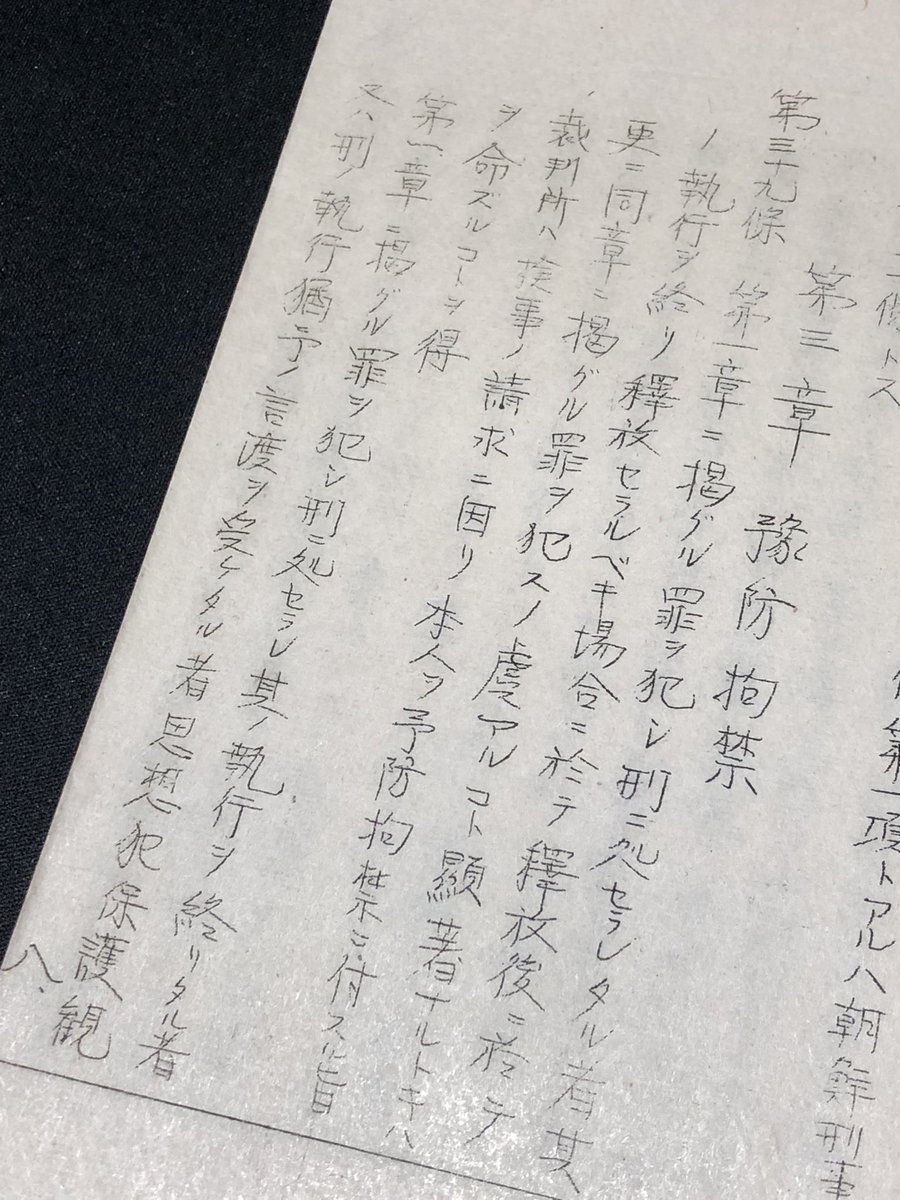 條トス
第一項トアルハ朝鮮刑事
第三章 豫防拘禁
第三十九條 第一章ニ掲グル罪ヲ犯シ刑ニ処セラレタル者其
ノ執行ヲ終リ釋放セラルベキ場合ニ於テ釋放後ニ於テ
更ニ同章ニ掲グル罪ヲ犯スノ虞アルコト顯著ナルトキハ
裁判所ハ検事ノ請求ニ因リ本人ヲ予防拘禁ニ付スル旨
ヲ命ズルコトヲ得
第一章ニ掲グル罪ヲ犯シ刑ニ処セラレ其ノ執行ヲ終リタル者
又ハ刑ノ執行猶予ノ言渡ヲ受ケタル者思想犯保護観
八